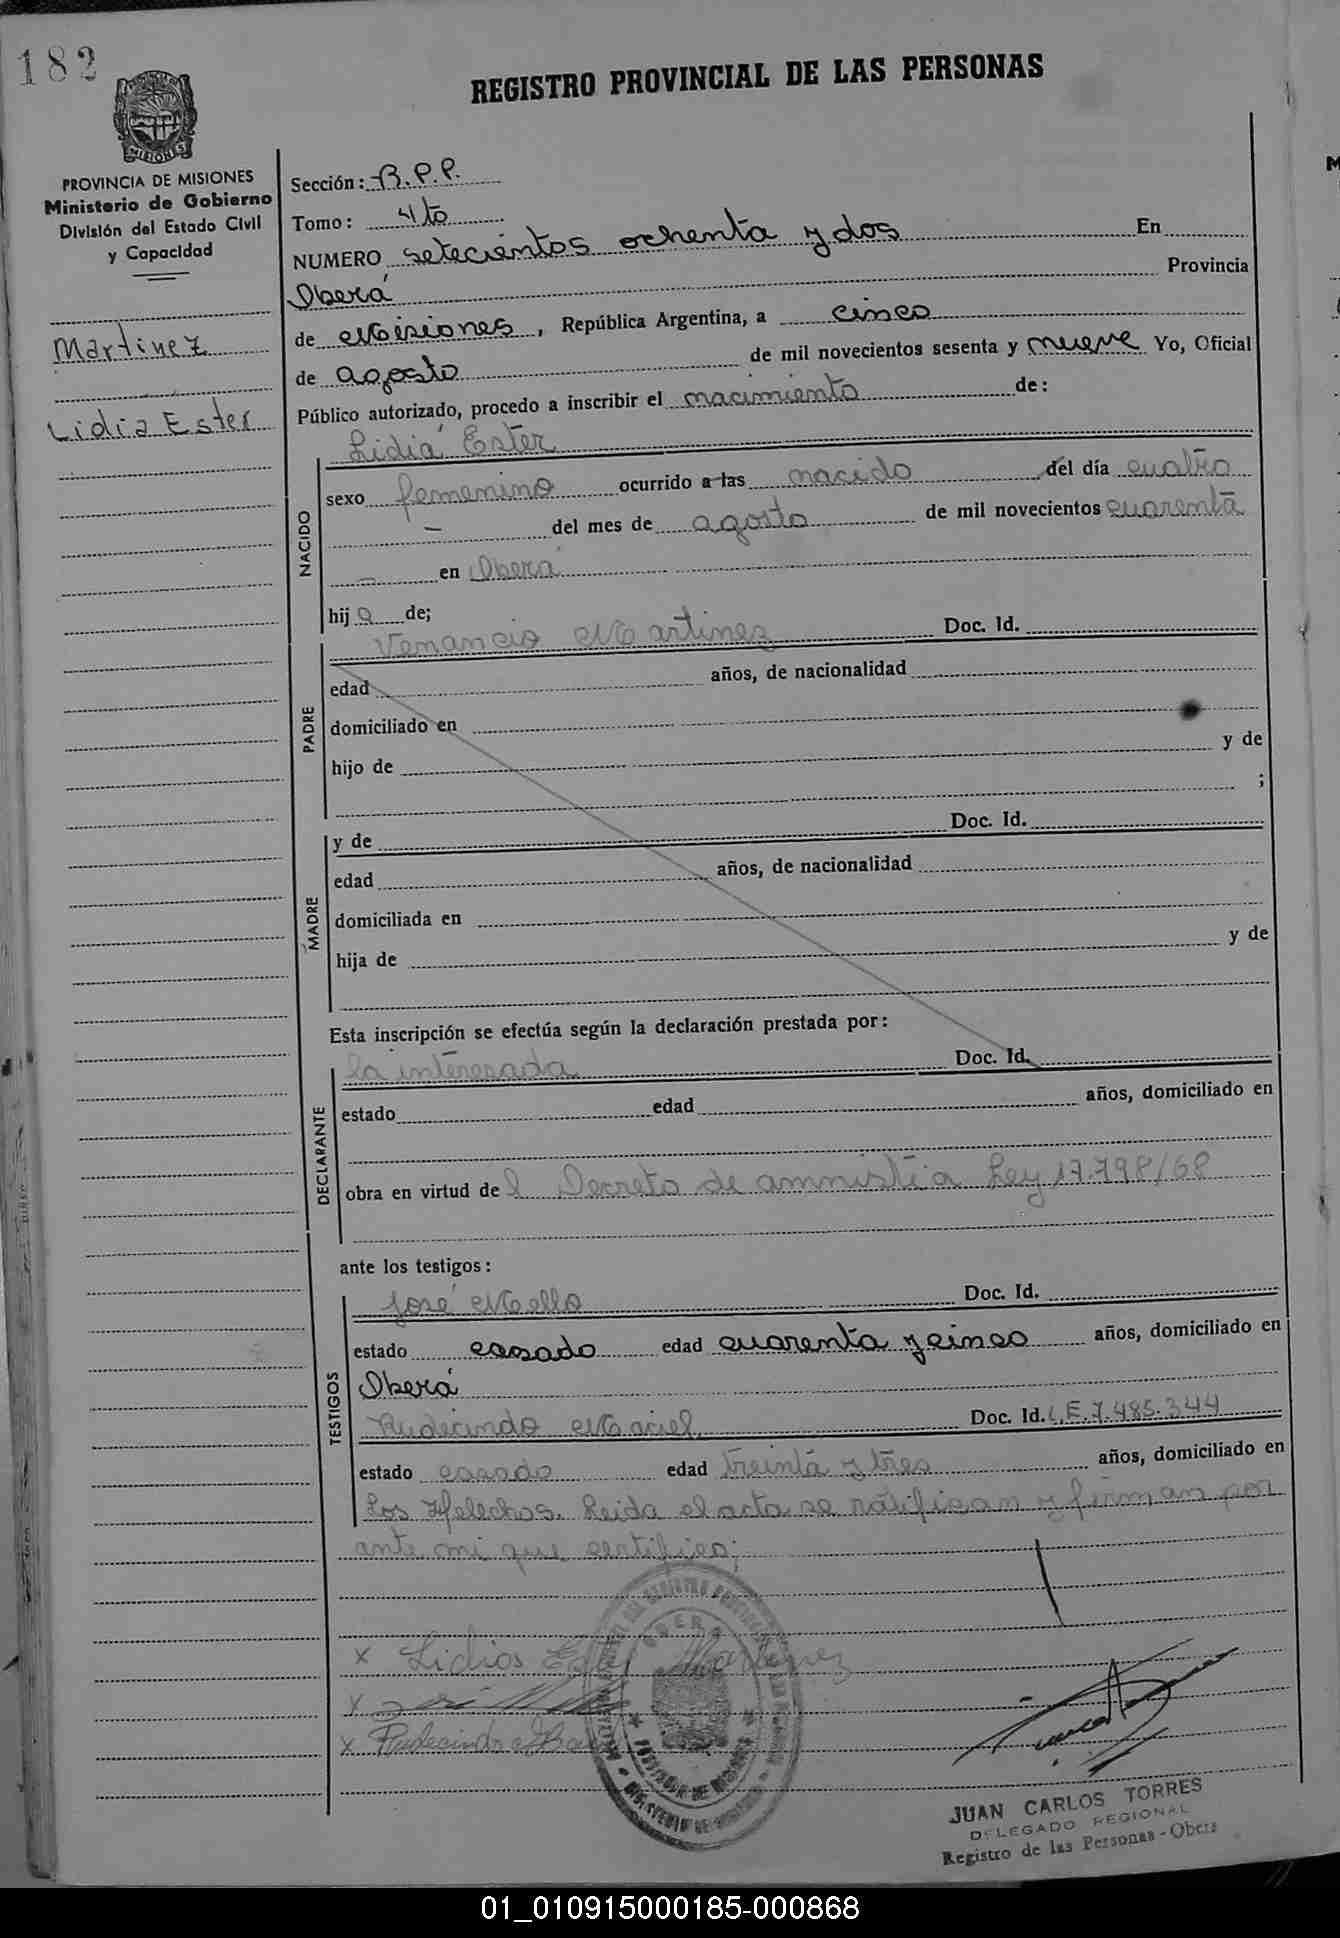 182
REGISTRO PROVINCIAL DE LAS PERSONAS
MISIONES
PROVINCIA DE MISIONES
Ministerio de Gobierno
División del Estado Civil
y Capacidad
Martinez
Lidia Ester
Sección: B.P.P.
Tomo: 4to
NUMERO setecientos ochenta y dos En
Oberá Provincia
de Misiones, República Argentina, a cinco
de agosto de mil novecientos sesenta y nueve Yo, Oficial
Público autorizado, procedo a inscribir el nacimiento de:
NACIDO
Lidia Ester
sexo femenino ocurrido a las nacido del día cuatro
— del mes de agosto de mil novecientos cuarenta
— en Oberá
hija de;
PADRE
Venancio Martinez Doc. Id.
edad años, de nacionalidad
domiciliado en
hijo de y de
;
MADRE
y de Doc. Id.
edad años, de nacionalidad
domiciliada en
hija de y de
Esta inscripción se efectúa según la declaración prestada por:
DECLARANTE
la interesada Doc. Id.
estado edad años, domiciliado en
obra en virtud del Decreto de amnistia Ley 17.798/68
ante los testigos:
TESTIGOS
José Mello Doc. Id.
estado casado edad cuarenta y cinco años, domiciliado en
Oberá
Rudecindo Maciel Doc. Id. L.E.7.485.344
estado casado edad treinta y tres años, domiciliado en
Los Helechos. Leida el acta se ratifican y firman por
ante mi que certifico;
x Lidia Ester Martinez
x
x Rudecindo
OBERA
JUAN CARLOS TORRES
DELEGADO REGIONAL
Registro de las Personas - Obera
01_010915000185-000868